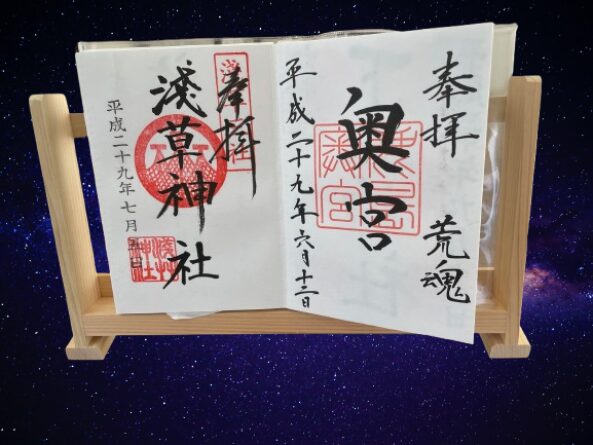 奉拝
荒魂
奥宮
平成二十九年六月十二日
奉拝
淺草神社
平成二十九年七月五日